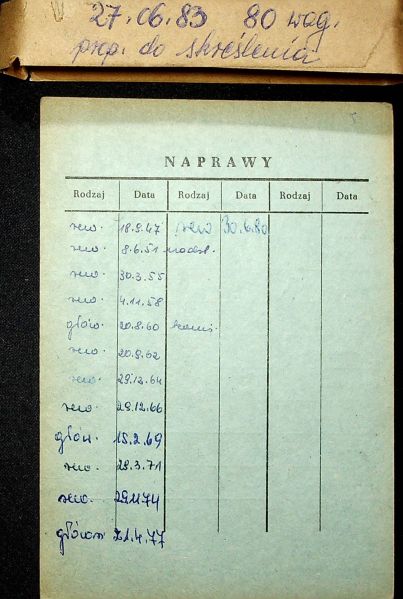 27.06.83 80 wag.
prop. do skreślenia
NAPRAWY
Rodzaj Data Rodzaj Data Rodzaj Data
rew. 18.9.47 rew 30.6.80
rew. 8.6.51
rew. 30.3.55
rew. 4.11.58
głów. 20.8.60
rew. 20.9.62
rew. 29.12.64
rew. 29.12.66
głów. 15.2.69
rew. 29.3.71
rew. 74
główn 21.4.77